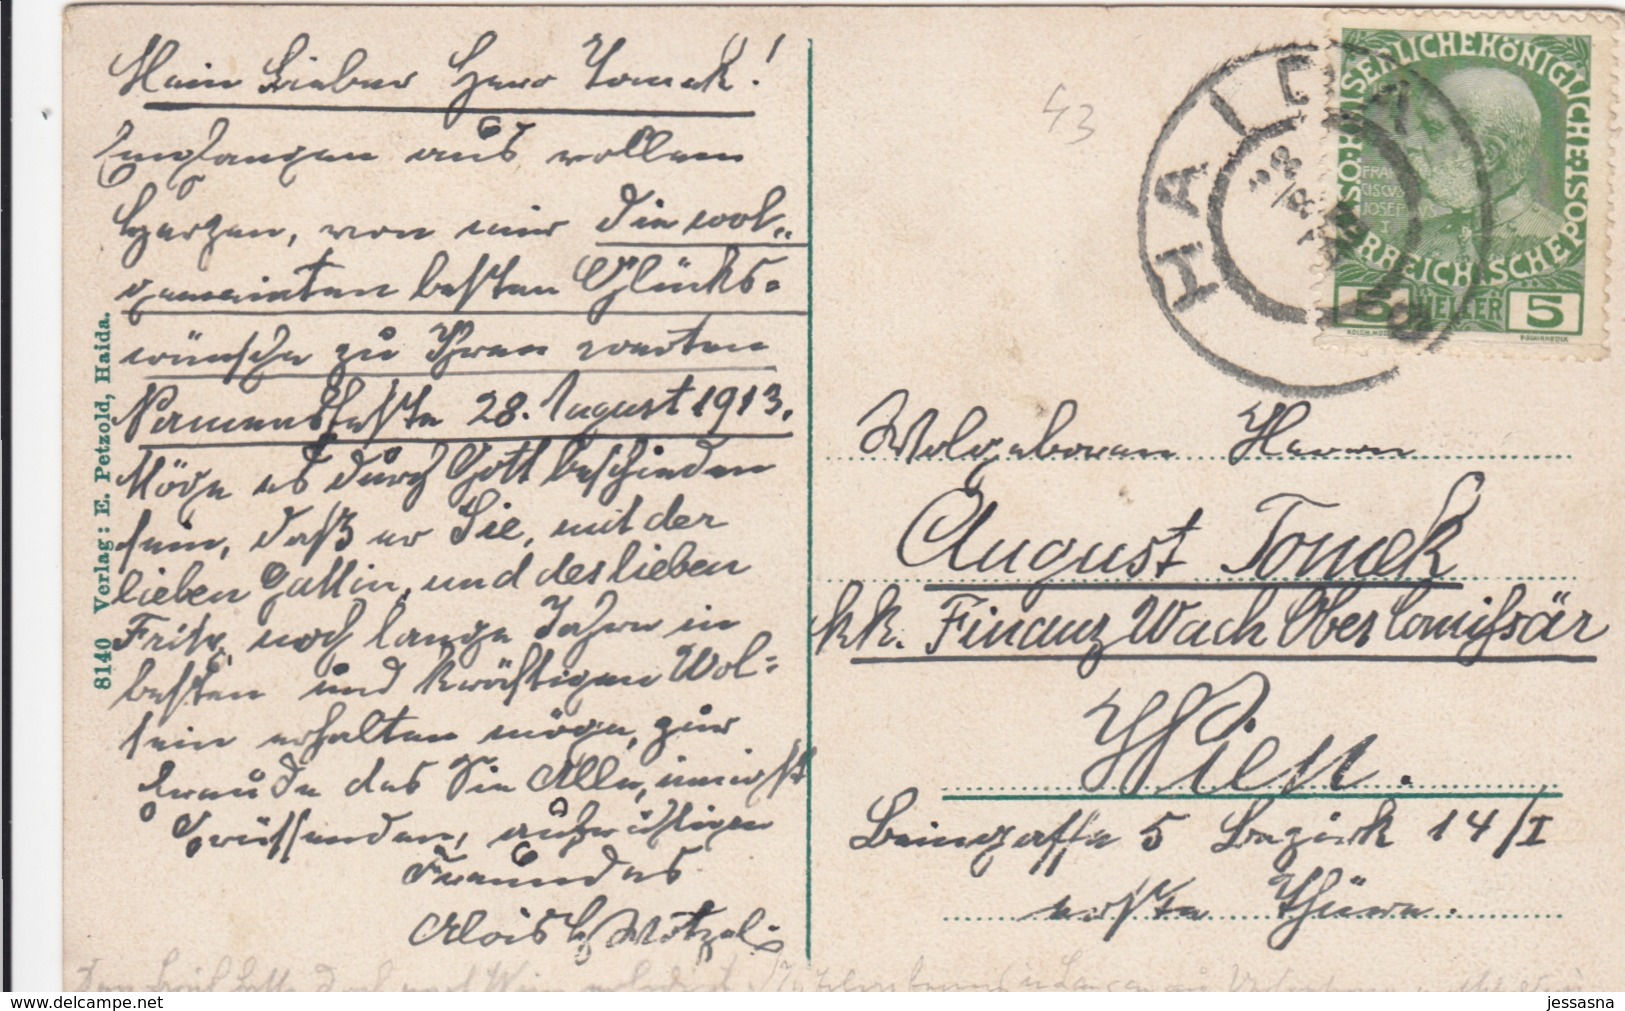 Mein Lieber Herr Tomek!
Empfangen aus vollem
Herzen, von mir die wol„
gemeinten besten Glücks=
wünsche zu Ihren werten
Namensfeste 28. August 1913.
Möge es durch Gott beschieden
sein, daß er Sie, mit der
lieben Gattin, und des lieben
Fritz, noch lange Jahre in
besten und kräftigen Wol=
sein erhalten möge, zur
Freude das Sie Alle, innigst
Grüssenden, aufrichtigen
Freundes
Alois
8140 Verlag: E. Petzold, Haida.
43
HAIDA
28/8
KAISERLICHE KÖNIGLICHE ÖSTERREICHISCHE POST
FRAN
CISCVS
JOSEF
I
5 HELLER 5
Wolgeboren Herrn
August Tomek
k.k. Finanz Wach Ober Comissär
Wien.
Beingasse 5 Bezirk 14/I
erste Thüre.
jessasna